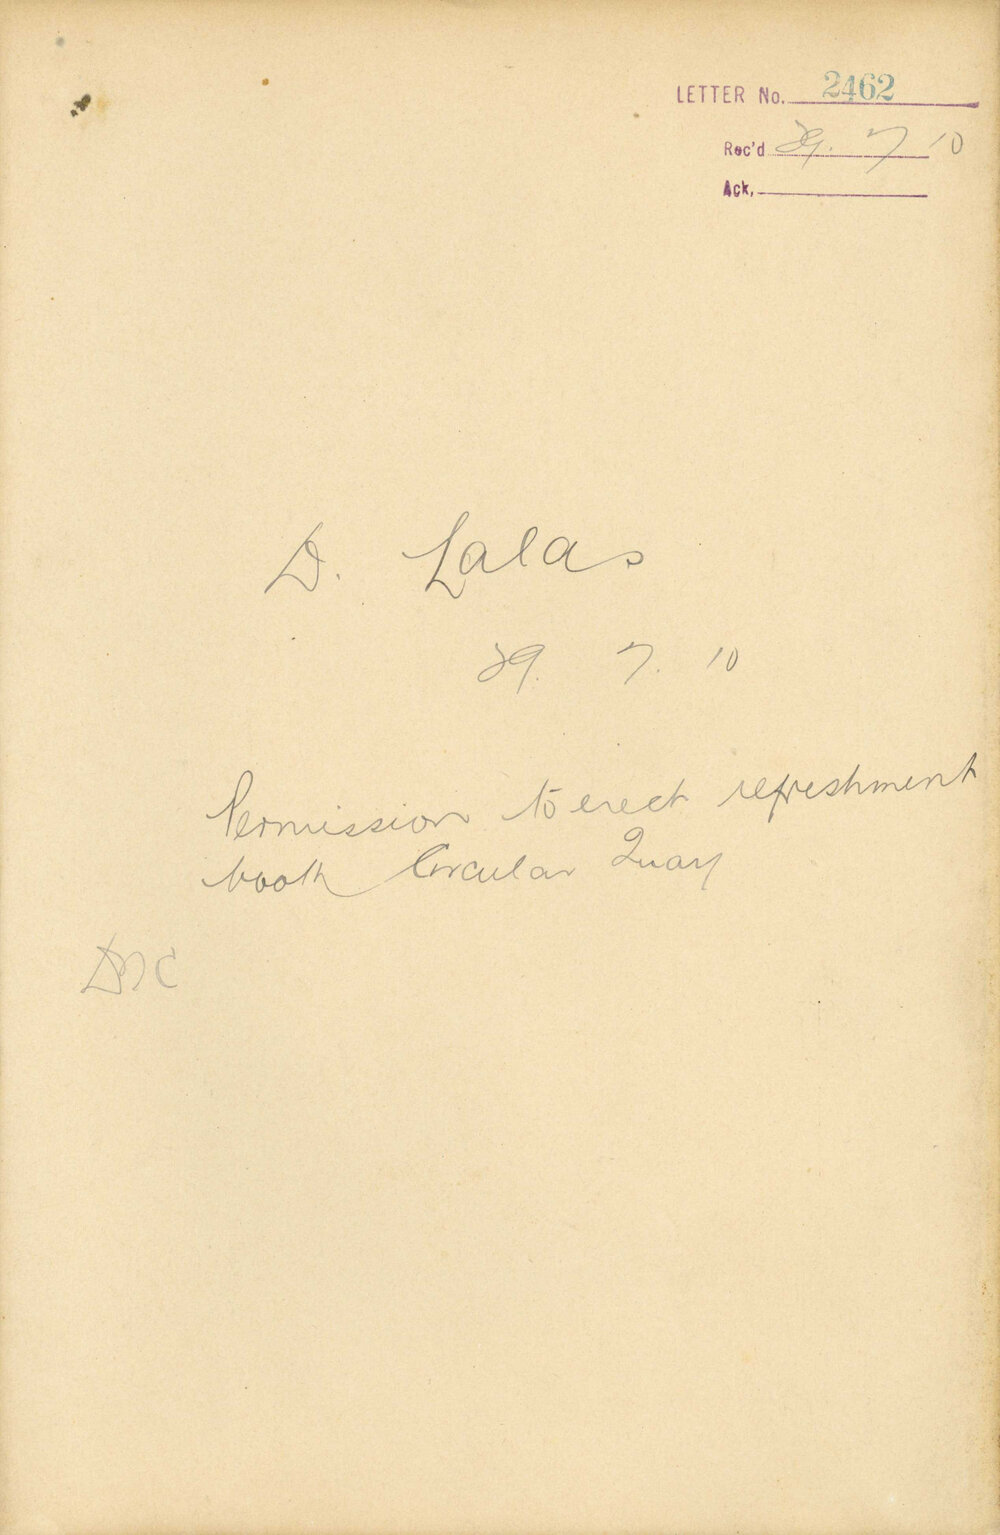 LETTER No. 2462
Rec'd 29. 7 10
Ack,
D. Lalas
29. 7. 10
Permission to erect refreshment
booth Circular Quay